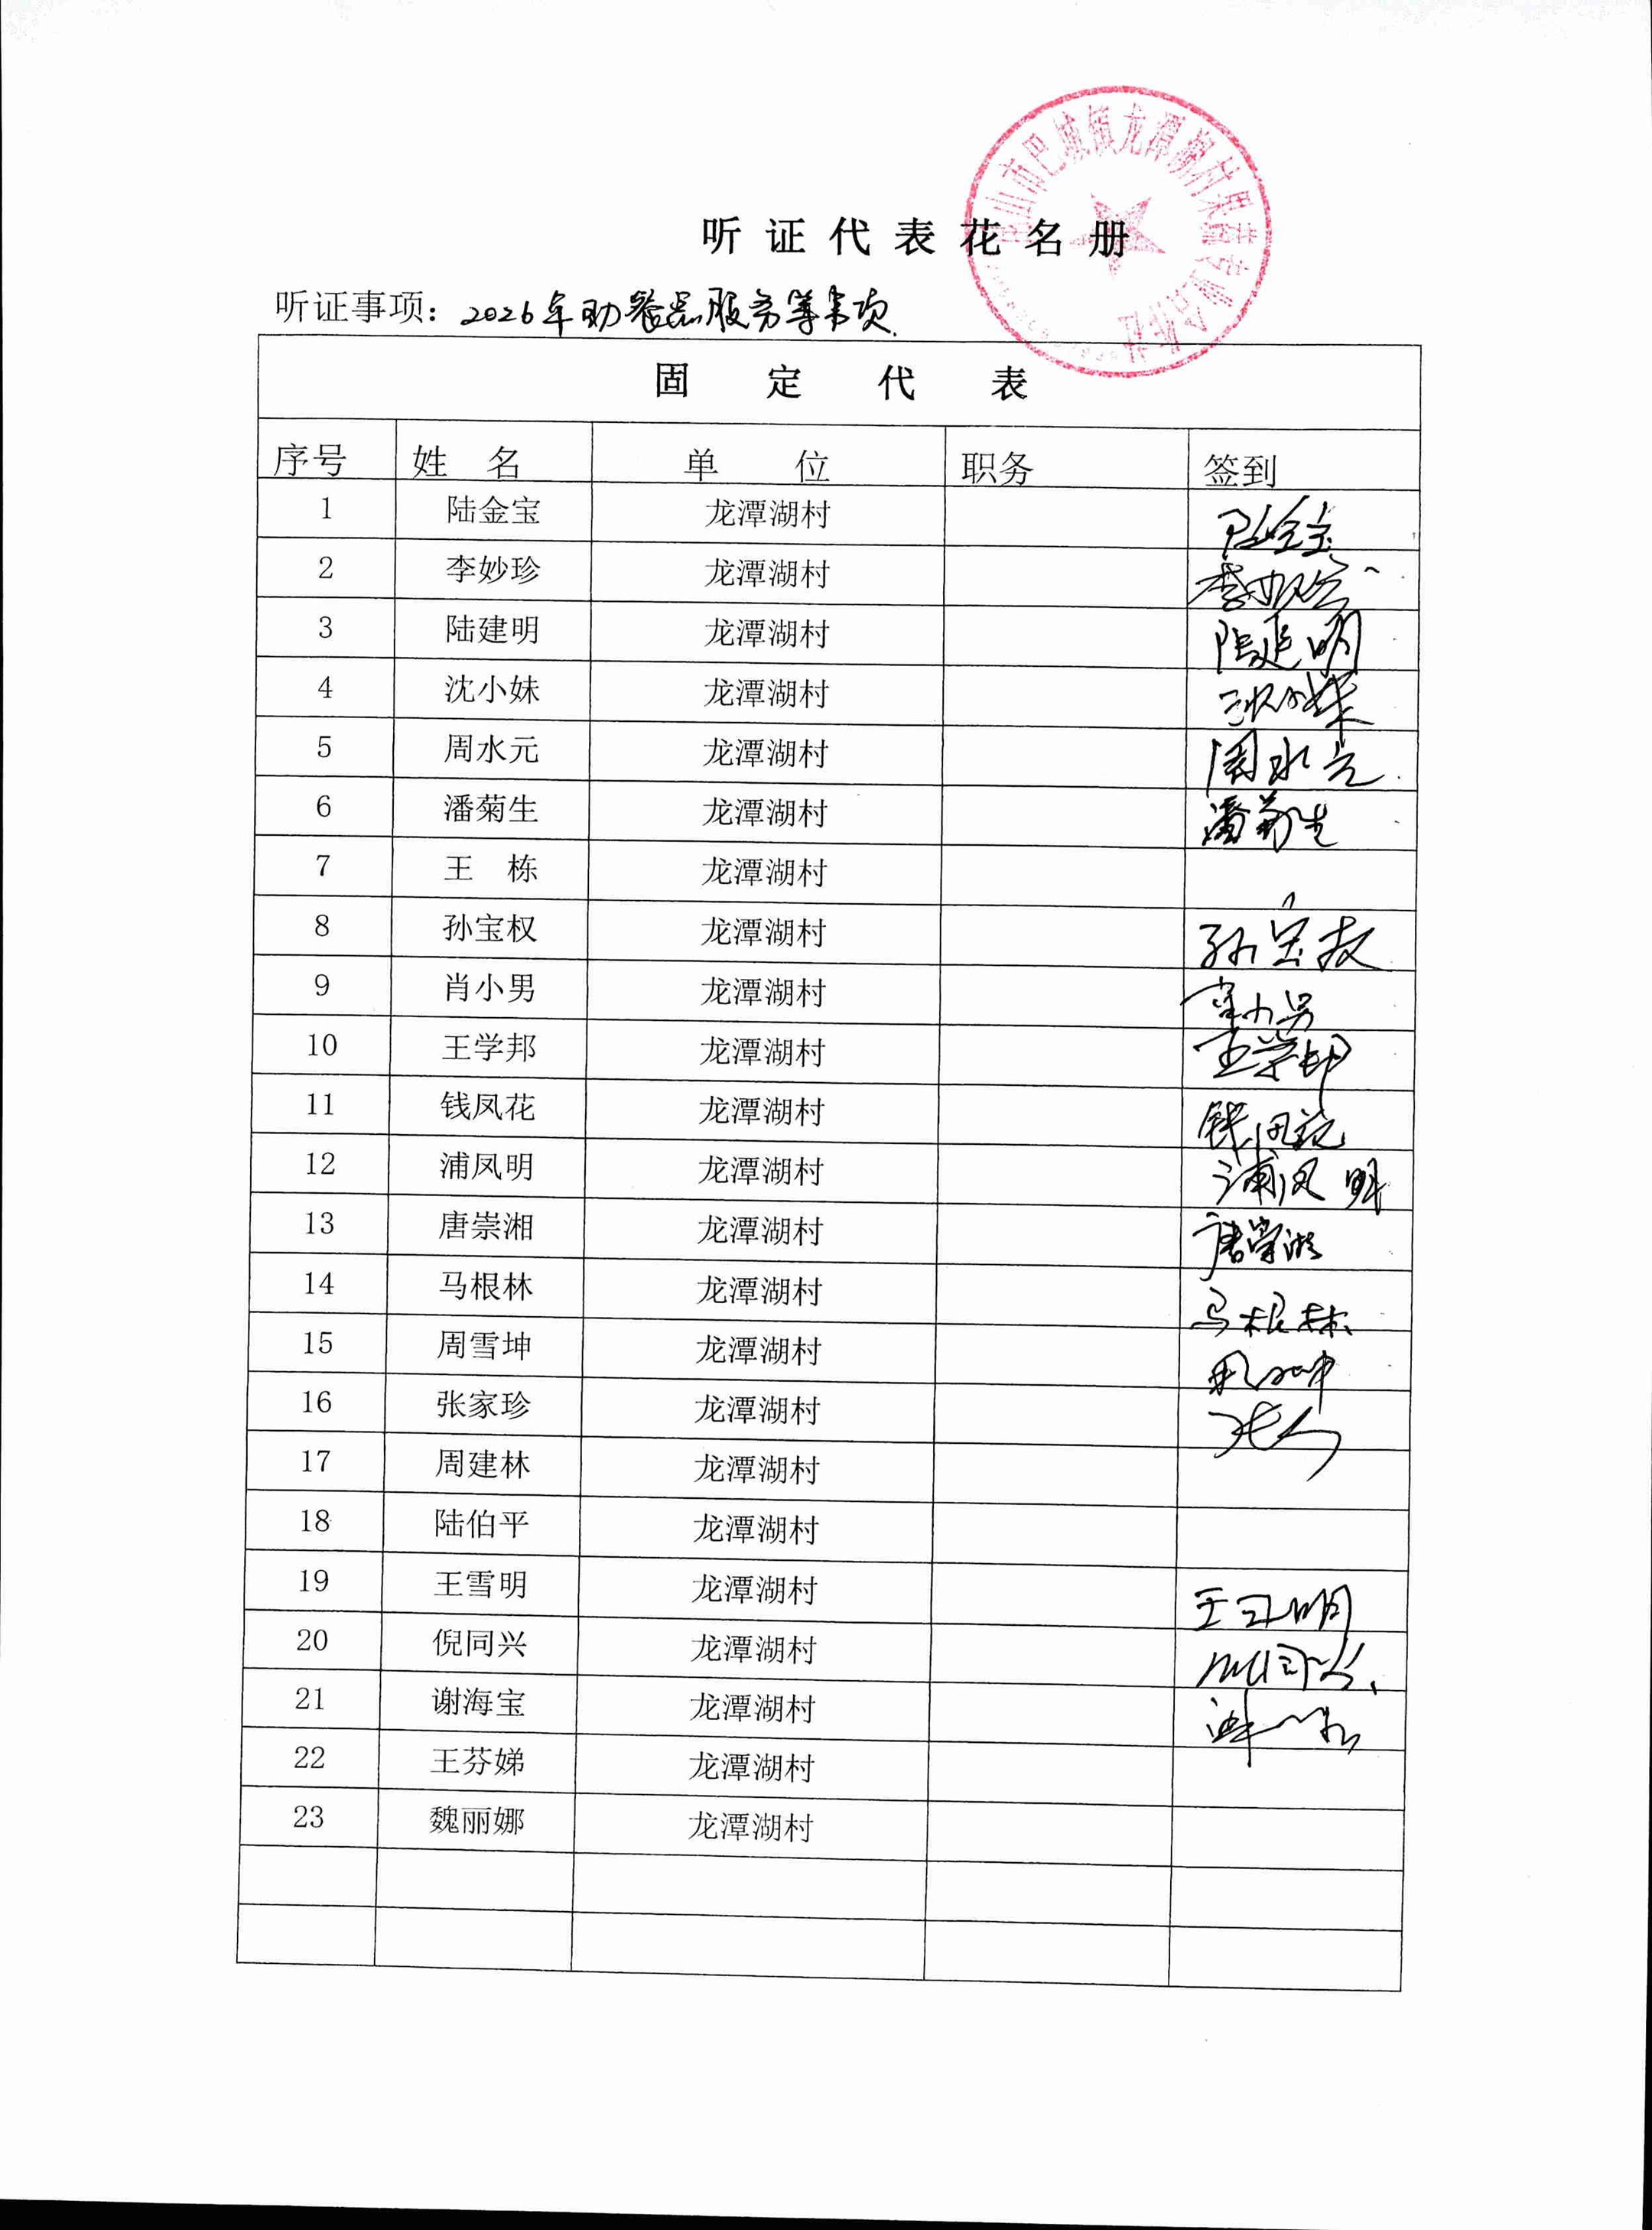 山市巴城镇龙潭湖村果蔬专业合作社
听证代表花名册
听证事项：2026年助餐点服务等事项
固 定 代 表
序号 姓 名 单 位 职务 签到
1 陆金宝 龙潭湖村 陆金宝
2 李妙珍 龙潭湖村 李妙珍
3 陆建明 龙潭湖村 陆建明
4 沈小妹 龙潭湖村 沈小妹
5 周水元 龙潭湖村 周水元
6 潘菊生 龙潭湖村 潘菊生
7 王 栋 龙潭湖村
8 孙宝权 龙潭湖村 孙宝权
9 肖小男 龙潭湖村 肖小男
10 王学邦 龙潭湖村 王学邦
11 钱凤花 龙潭湖村 钱凤花
12 浦凤明 龙潭湖村 浦凤明
13 唐崇湘 龙潭湖村 唐崇湘
14 马根林 龙潭湖村 马根林
15 周雪坤 龙潭湖村
16 张家珍 龙潭湖村
17 周建林 龙潭湖村
18 陆伯平 龙潭湖村
19 王雪明 龙潭湖村 王雪明
20 倪同兴 龙潭湖村 倪同兴
21 谢海宝 龙潭湖村
22 王芬娣 龙潭湖村
23 魏丽娜 龙潭湖村